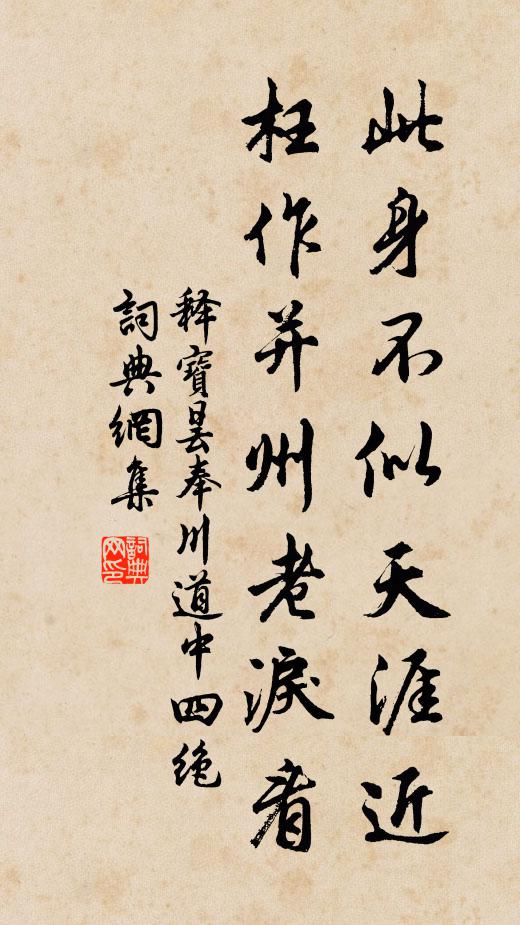 此身不似天涯近
枉作并州老淚看
释寶昙奉川道中四绝
詞典網集
詞典网印